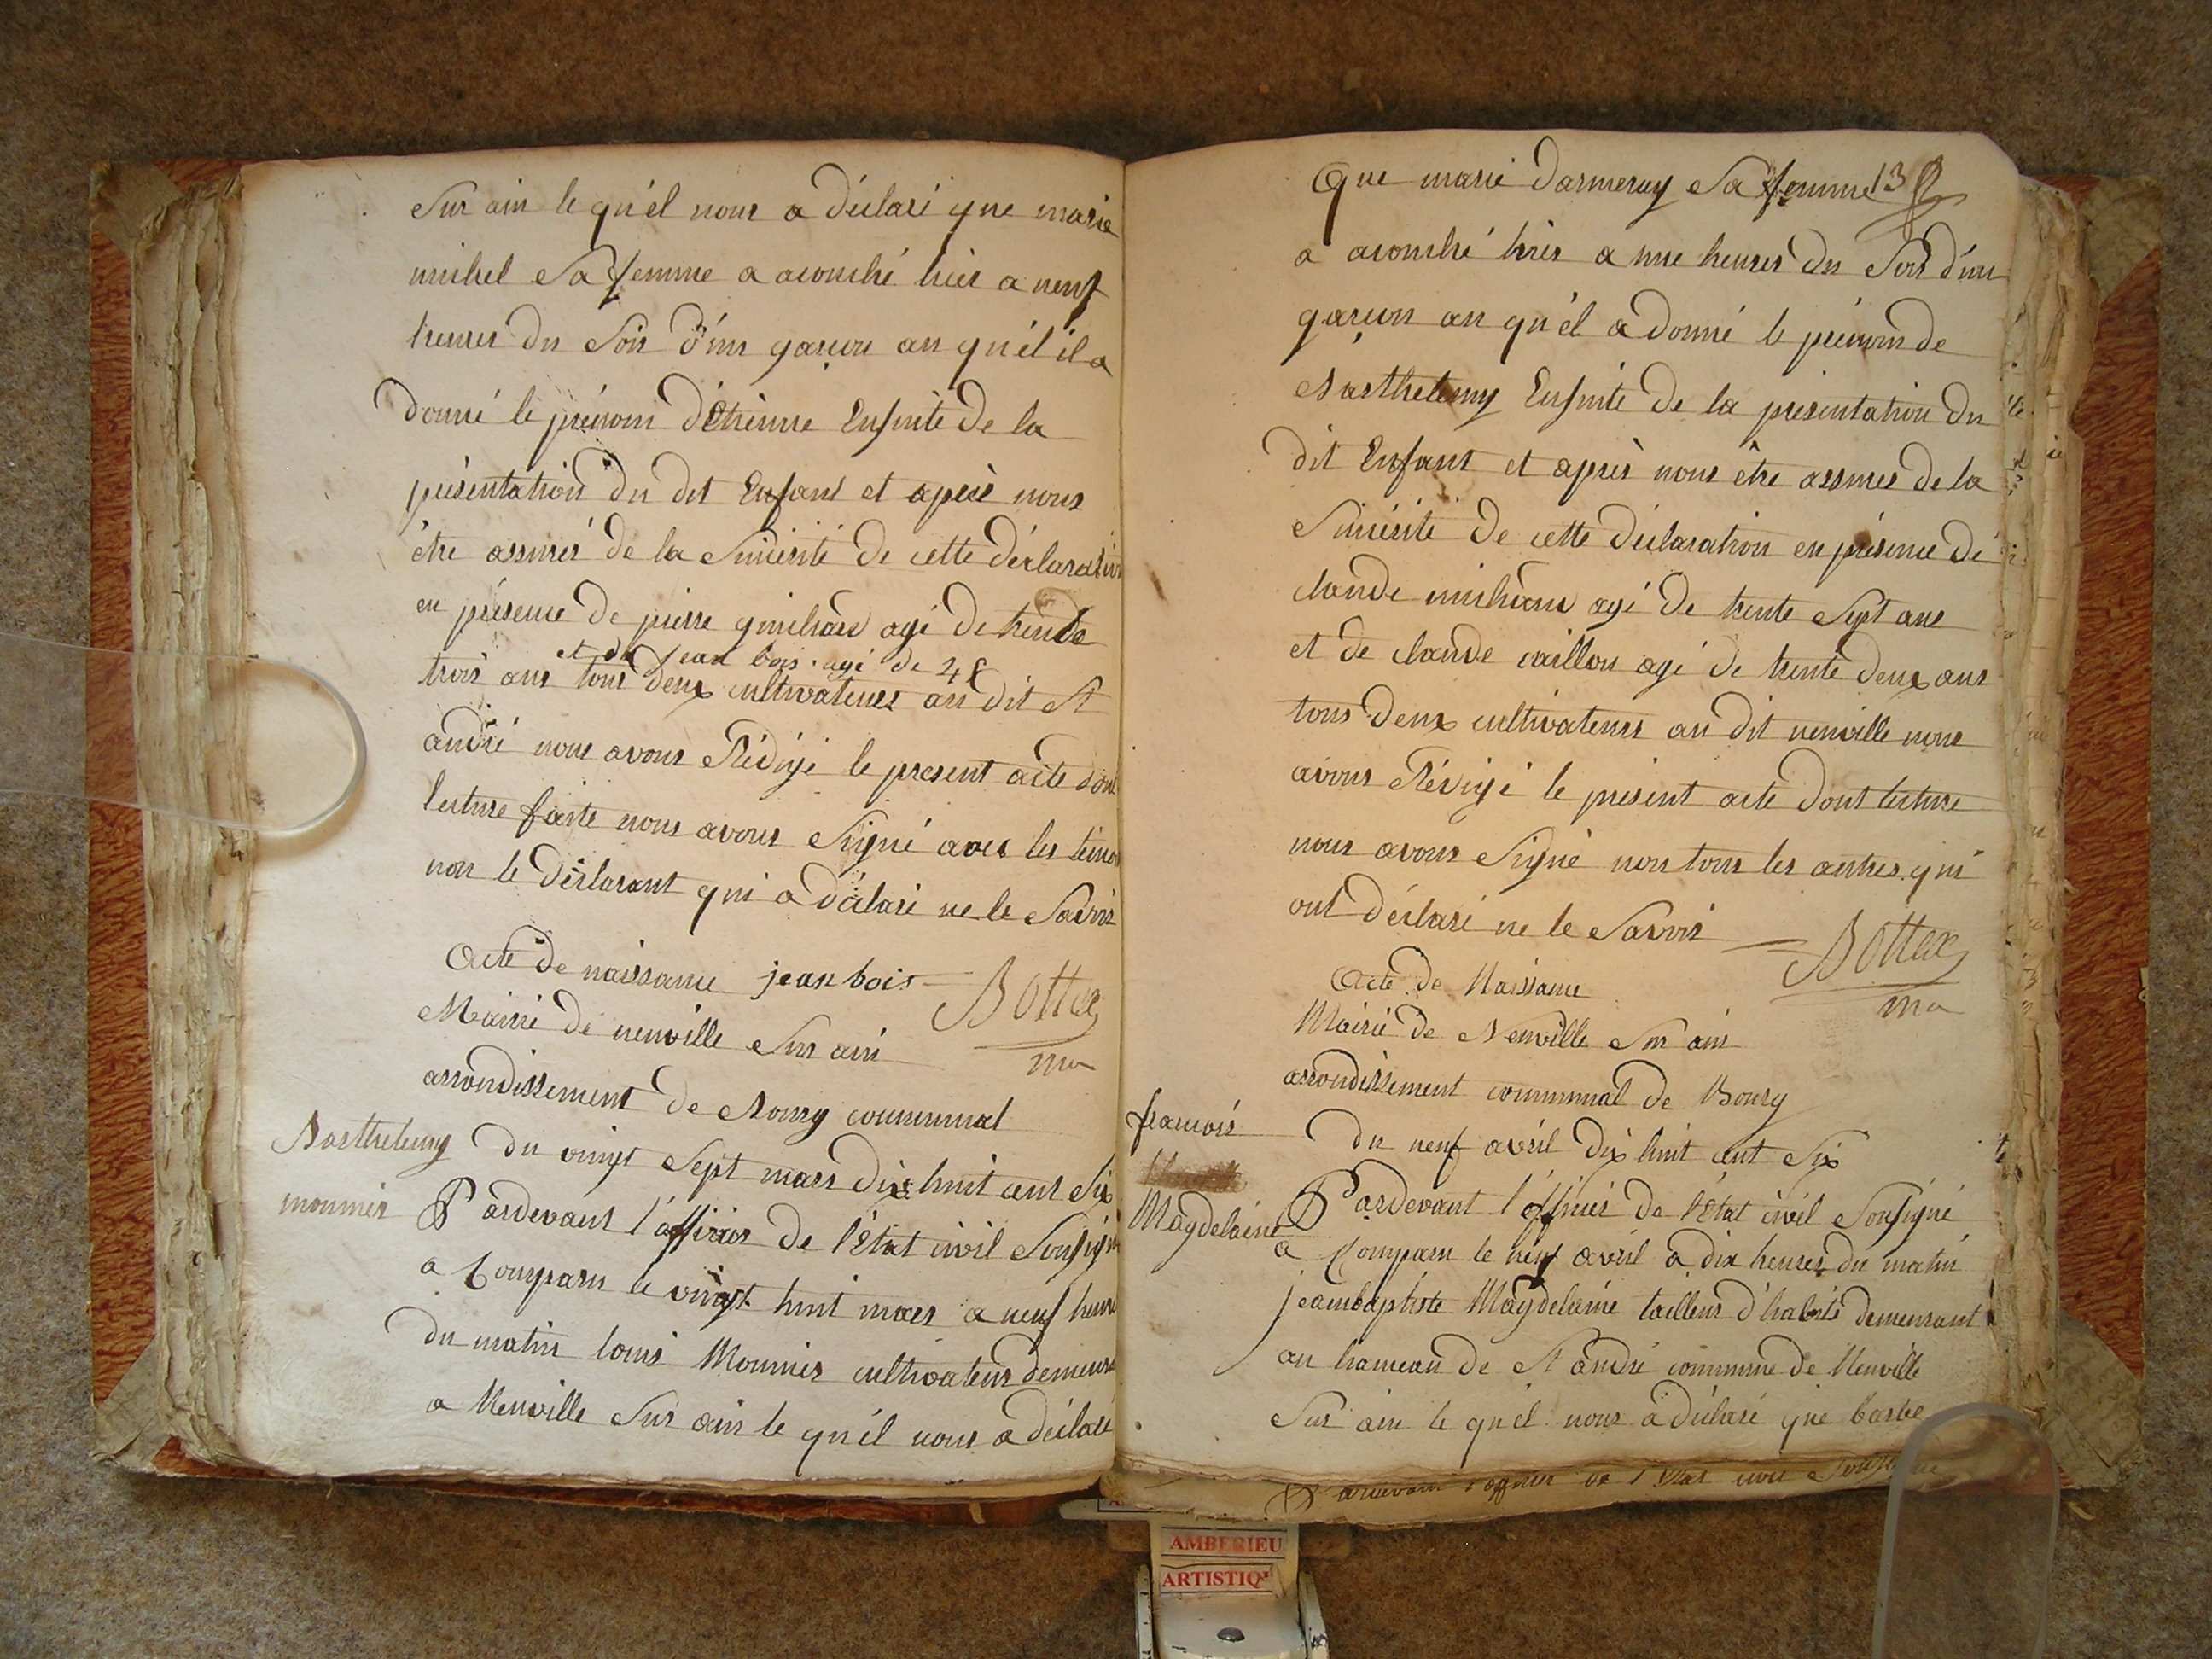 Sur ain le qu'él nous a déclaré que marie
michel Sa femme a acouché hier a neuf
heures du Soir d'un garçon au qu'él il a
donné le prénom d'Etienne Ensuite de la
présentation du dit Enfant et après nous
être assuré de la Sincerité de cette déclaration
en présence de pierre guichard agé de trente
et de jean bois agé de 48
trois ans tous deux cultivateurs au dit St
andré nous avons Rédigé le present acte dont
lecture faite nous avons Signé avec les témo
non le déclarant qui a déclaré ne le Savoir
acte de naissance jean bois
Bottex
ma
Mairie de neuville Sur ain
arrondissement de Bourg communal
Barthelemy
mounier
du vingt Sept mars dix huit cent Six
Pardevant l'officier de l'état civil Sousign
a Comparu le vingt huit mars a neuf heure
du matin louis Mounier cultivateur demeura
a Neuville Sur ain le qu'él nous a déclaré
Que marie darmeray Sa femme 13
a acouché hier a une heures du Soir d'un
garçon au qu'él a donné le prénom de
Barthelemy Ensuite de la présentation du
dit Enfant et après nous être assurés de la
Sincérité de cette déclaration en présence de
claude agé de trente Sept ans
et de claude caillon agé de trente deux ans
tous deux cultivateurs au dit neuville nous
avons Rédigé le présent acte dont lecture
nous avons Signé non tous les autres qui
ont déclaré ne le Savoir
Bottex
ma
Acte de Naissance
Mairie de Neuville Sur ain
arrondissement communal de Bourg
francois
Magdelaine
du neuf avril dix huit cent Six
Pardevant l'officier de l'Etat civil Sousigné
a Comparu le neuf avril a dix heures du matin
jeanbaptiste Magdelaine tailleur d'habits demeurant
au hameau de St andré commune de Neuville
Sur ain le qu'él nous a déclaré que barbe
Pardevant l'officier de l'Etat civil Sousigné
AMBERIEU
ARTISTIQ